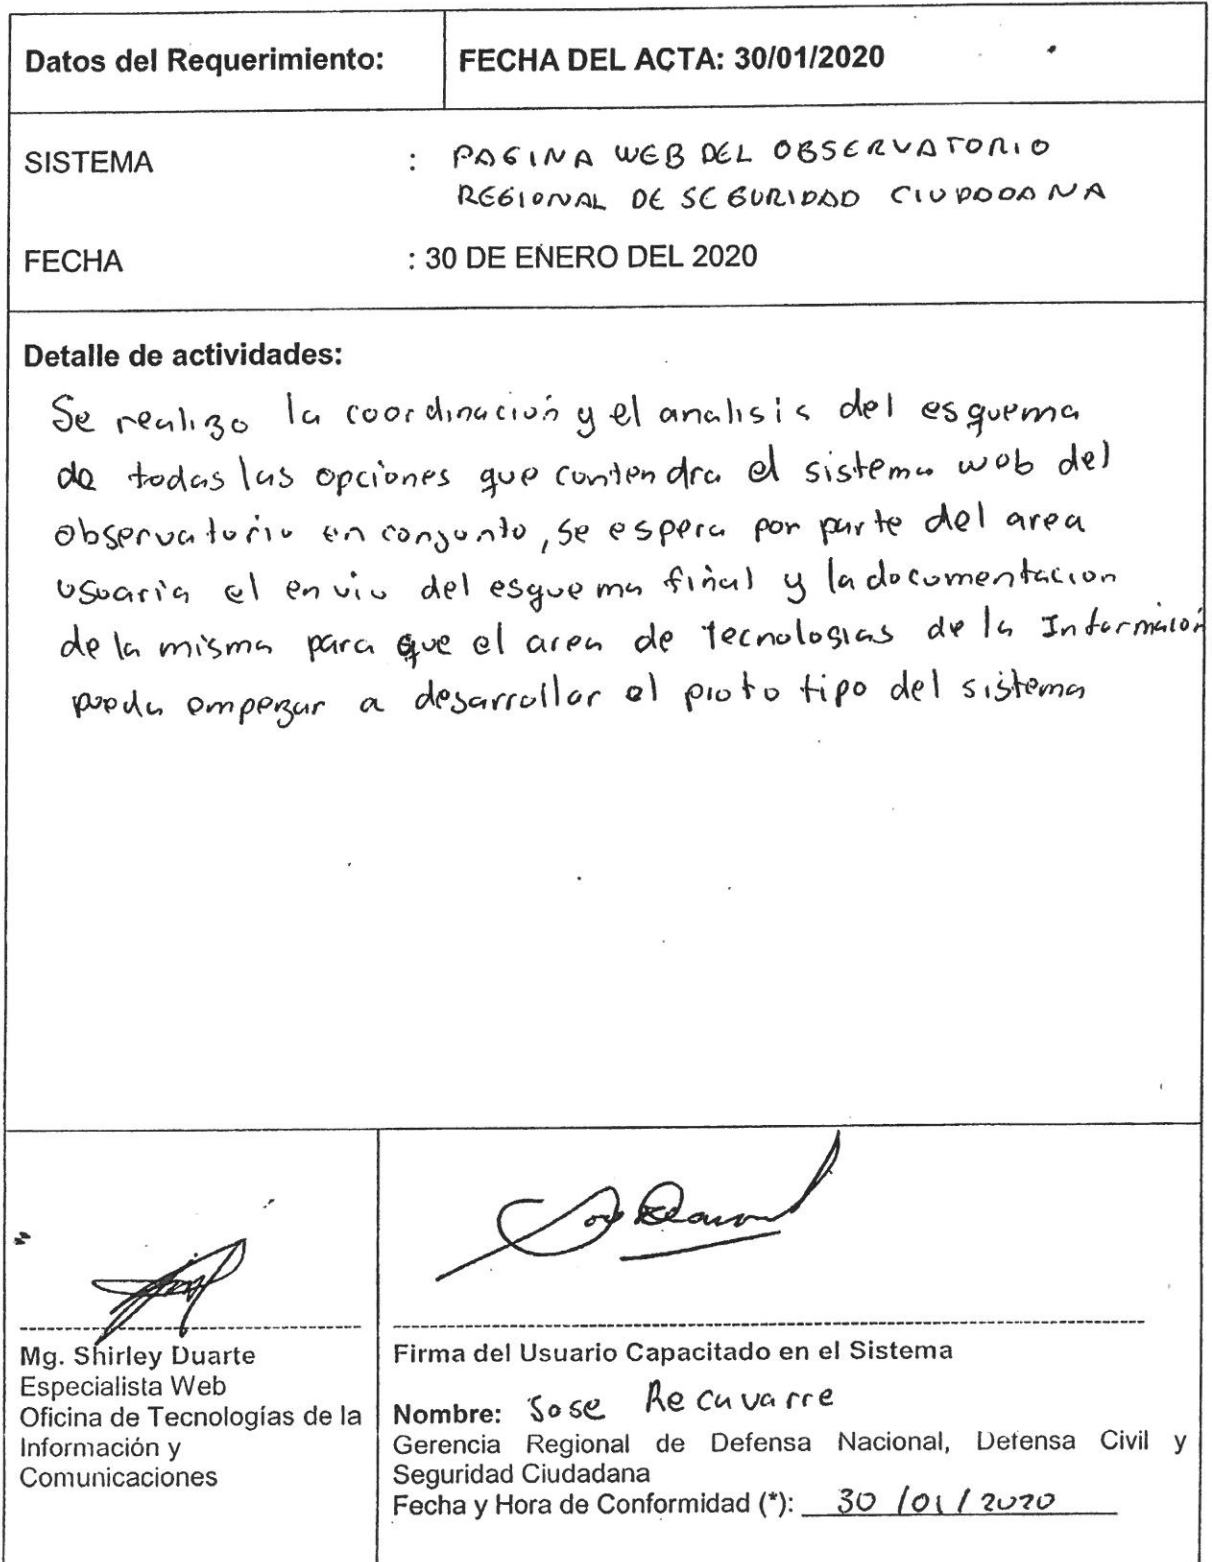 Datos del Requerimiento:
FECHA DEL ACTA: 30/01/2020
SISTEMA : PAGINA WEB DEL OBSERVATORIO
REGIONAL DE SEGURIDAD CIUDADANA
FECHA : 30 DE ENERO DEL 2020
Detalle de actividades:
Se realizo la coordinación y el analisis del esquema
de todas las opciones que contendra el sistema web del
observatorio en conjunto, se espera por parte del area
usuaria el envio del esquema final y la documentacion
de la misma para que el area de Tecnologias de la Información
pueda empezar a desarrollar el prototipo del sistema
Mg. Shirley Duarte
Especialista Web
Oficina de Tecnologías de la
Información y
Comunicaciones
Firma del Usuario Capacitado en el Sistema
Nombre: Jose Recavarre
Gerencia Regional de Defensa Nacional, Defensa Civil y
Seguridad Ciudadana
Fecha y Hora de Conformidad (*): 30/01/2020